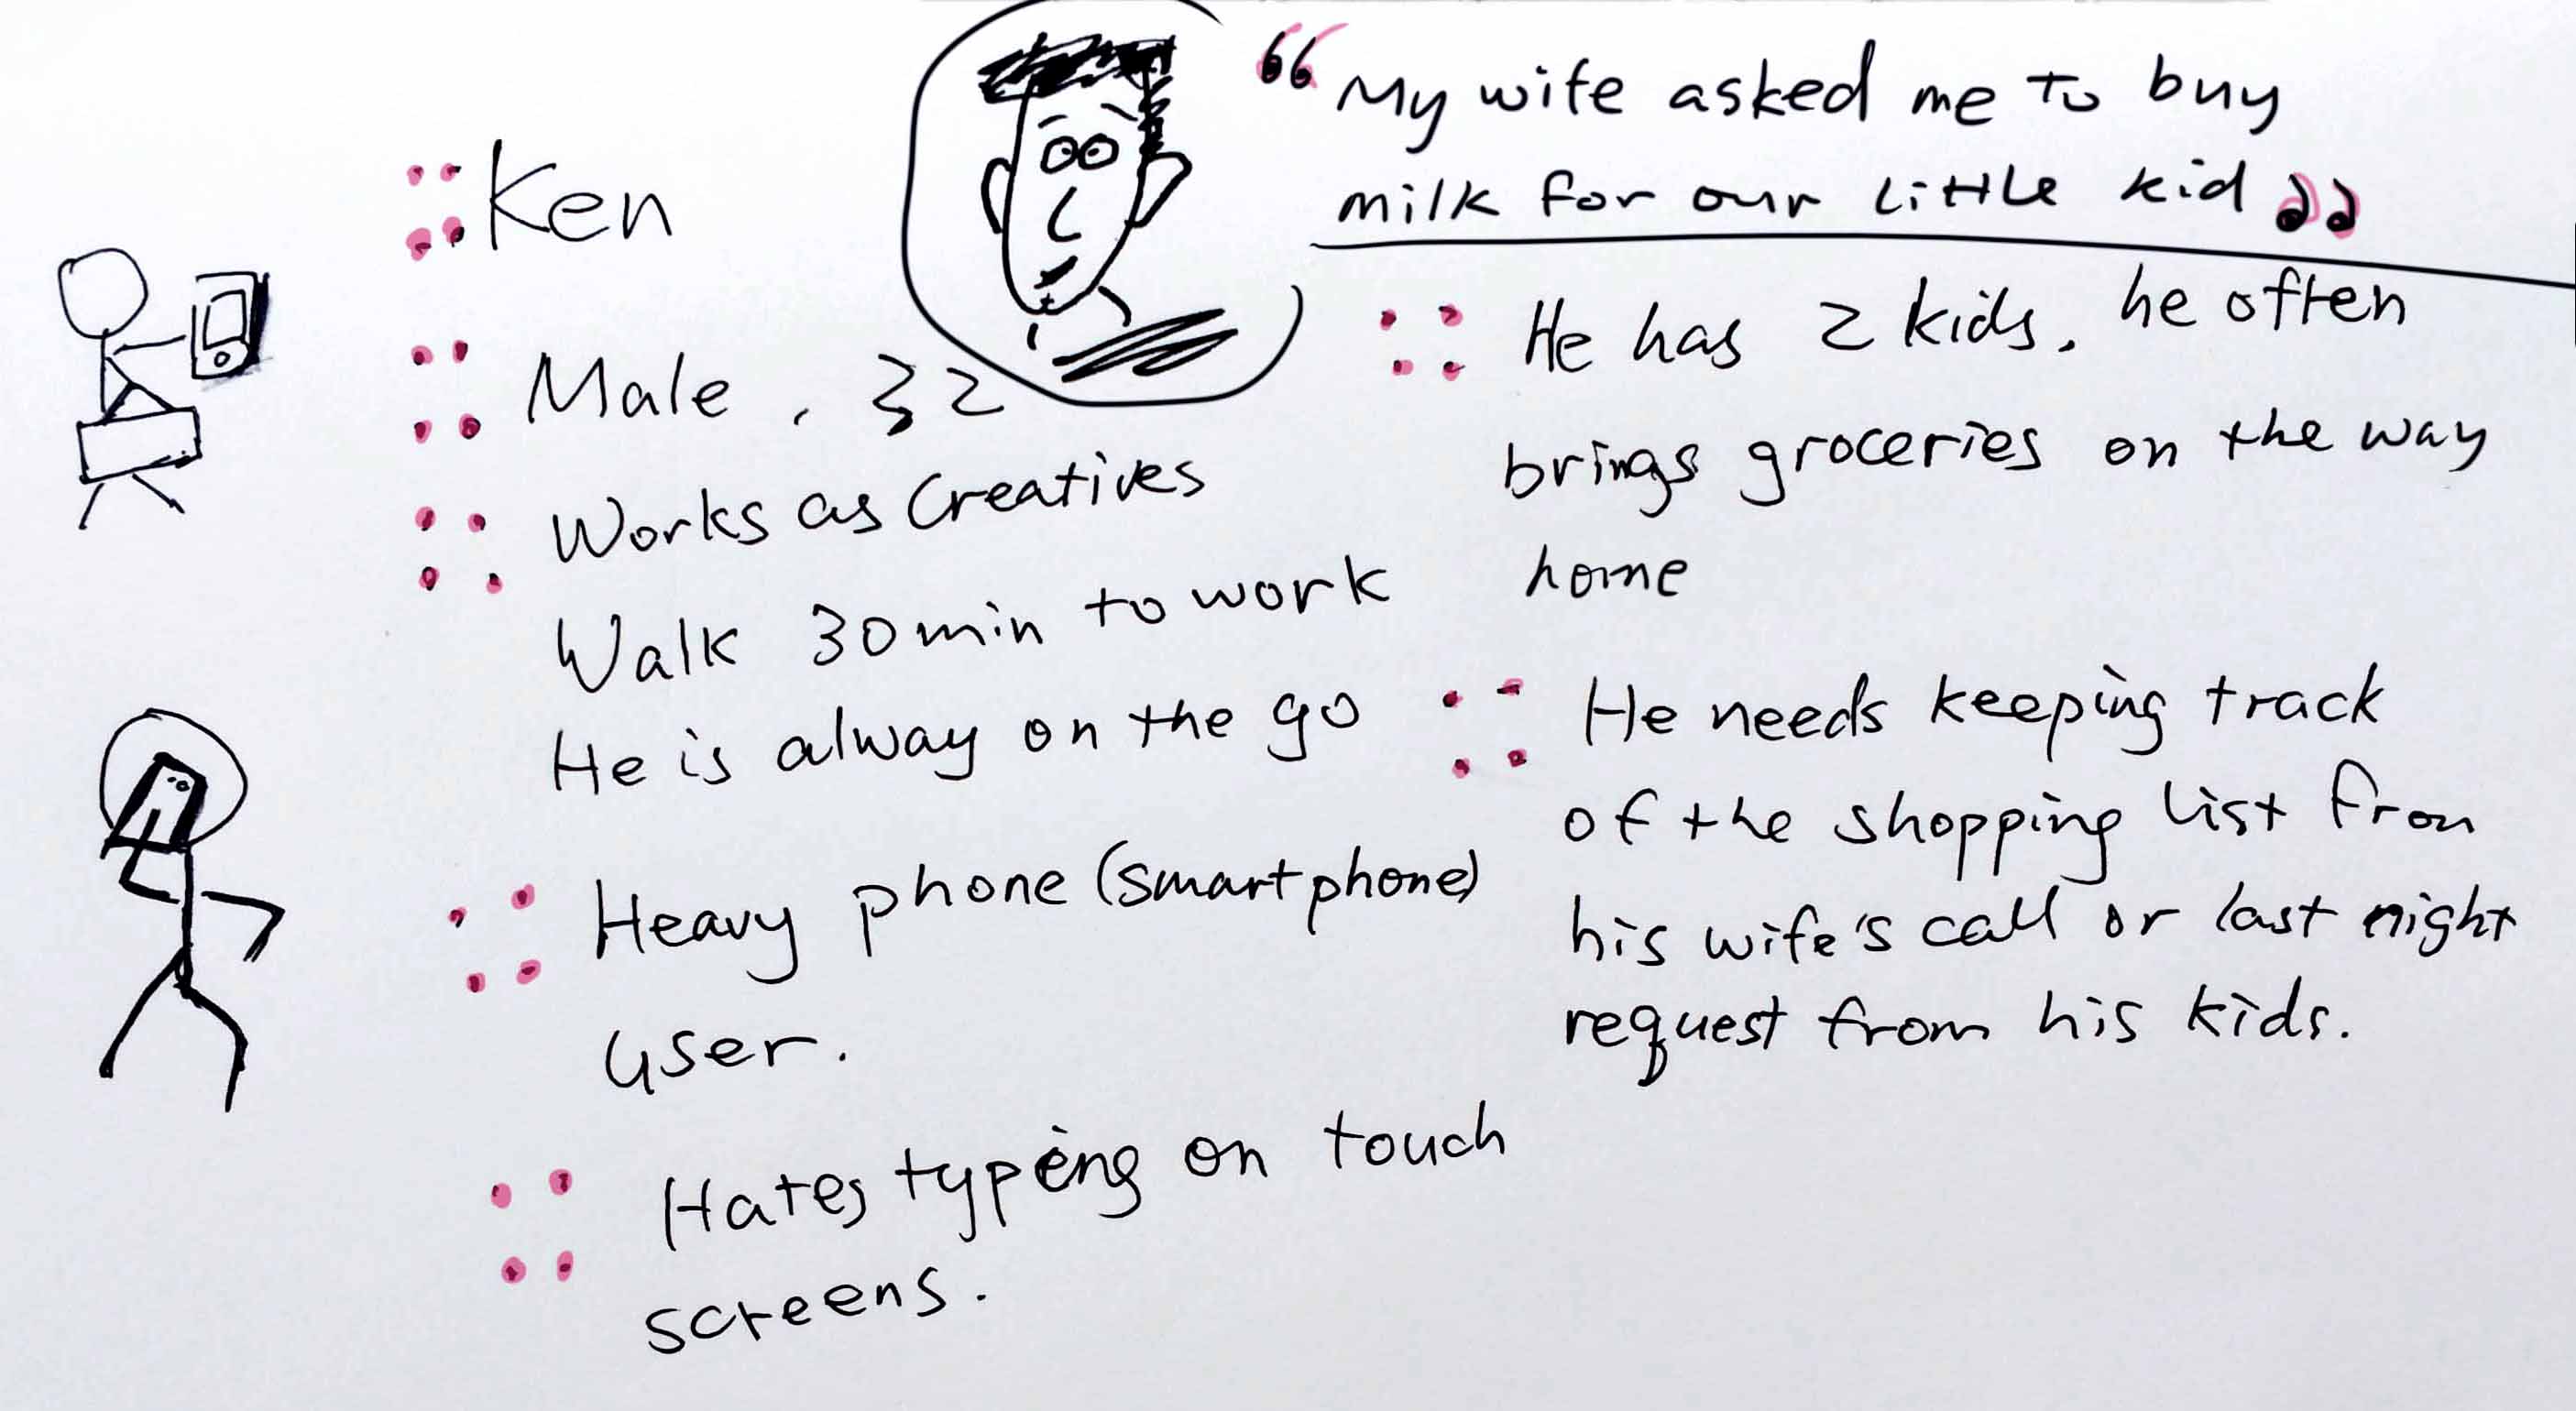 Ken
Male, 32
Works as Creatives
Walk 30min to work
He is alway on the go
Heavy phone (smartphone)
user.
Hates typing on touch
screens.
“My wife asked me to buy
milk for our little kid”
He has 2 kids, he often
brings groceries on the way
home
He needs keeping track
of the shopping list from
his wife's call or last night
request from his kids.